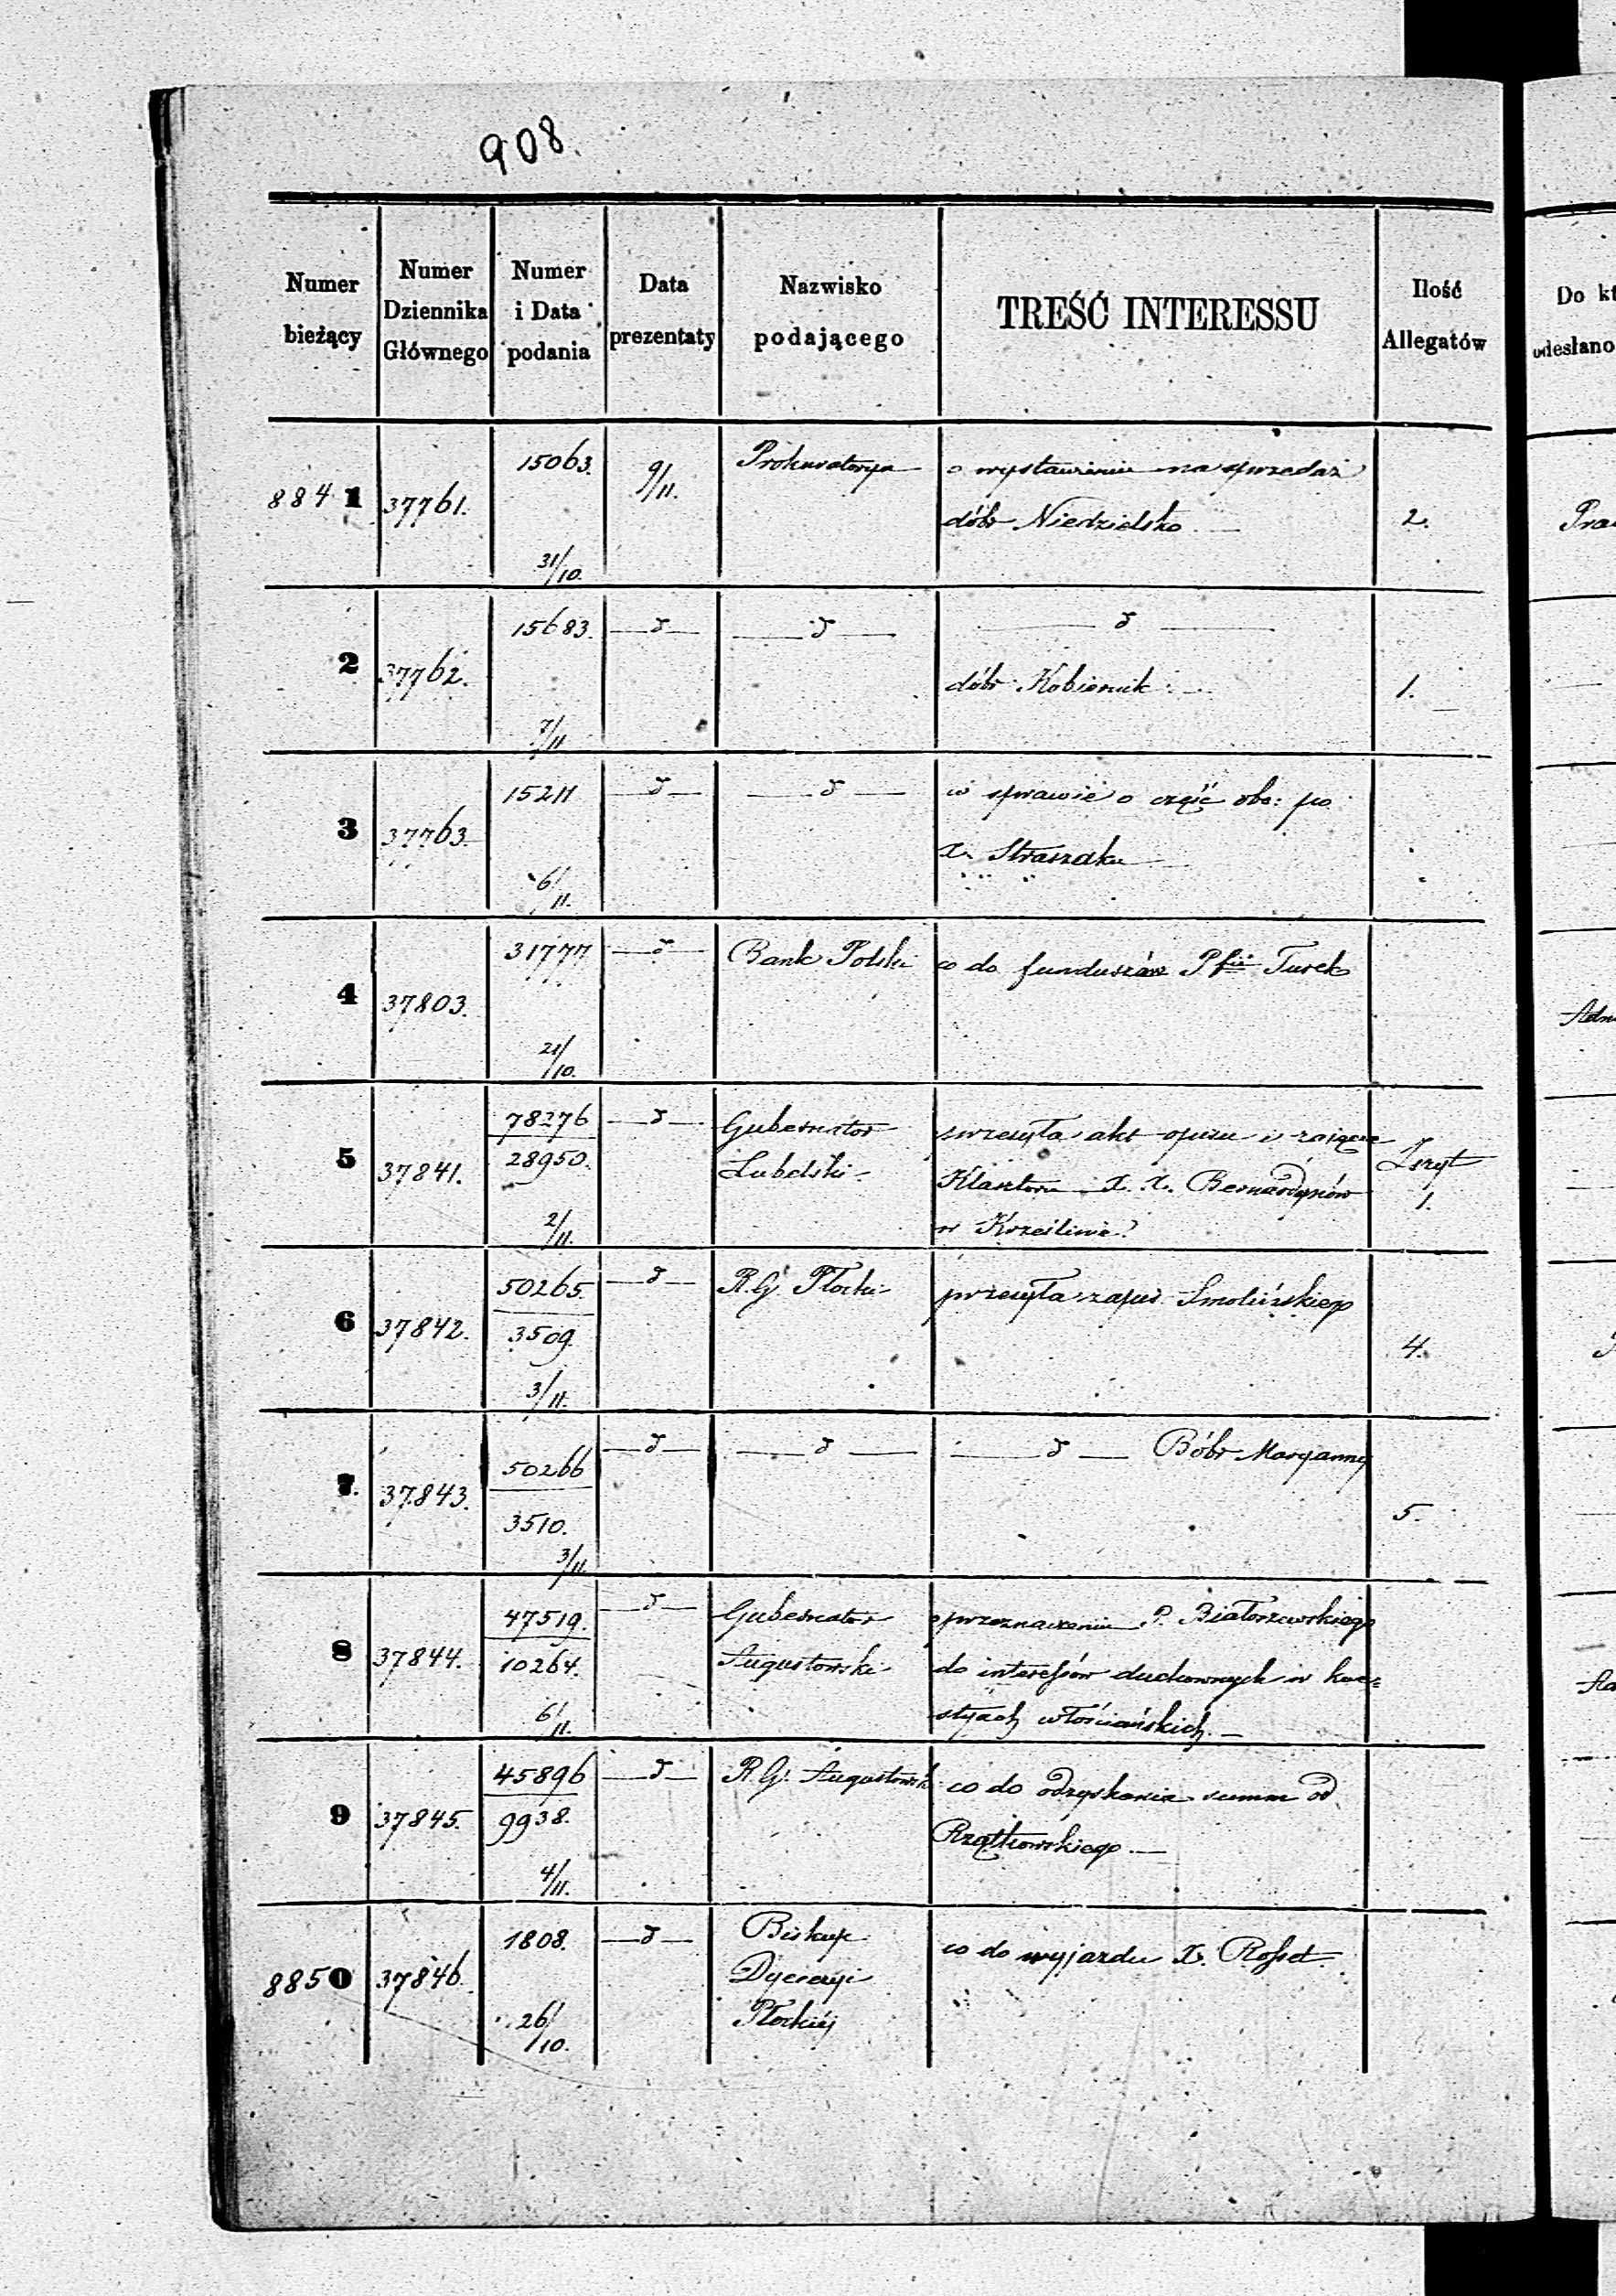 908.
Numer bieżący
Numer Dziennika Głównego
Numer i Data podania
Data prezentaty
Nazwisko podającego
TREŚĆ INTERESSU
Ilość Allegatów
Do kt
odesłano
8841 37761. 15063. 31/10. 9/11. Prokuratorya o wystawieniu na sprzedaż
dóbr Niedzielsko 2.
2 37762. 15683. 7/11 d d d
dóbr Kobiernik 1.
3 37763. 15211 6/11. d d w sprawie o część obc: po
X. Straszaku
4 37803. 31777 21/10. d Bank Polski co do funduszów Pfii Turek
5 37841. 78276 28950. 2/11. d Gubernator przesyła akt opisu i zajęcia
Lubelski Klasztoru X. X. Bernardynów Zszyt
w Krześlinie 1.
6 37842. 50265. 3509. 3/11. d R. G. Płocki przesyła zapis Smolińskiego
4.
7. 37843. 50266 3510. 3/11. d d d Bóbr Maryanny
5.
8 37844. 47519. 10264. 6/11. d Gubernator o przeznaczeniu P. Białorzewskiego
Augustowski do interesów duchownych w kwe=
styach włościańskich.
9 37845. 45896 9938. 4/11. d R. G. Augustowski co do odzyskania summ od
Rzątkowskiego
8850 37846. 1808. 26/10. d Biskup co do wyjazdu X. Rosset.
Dyecezyi
Płockiéj